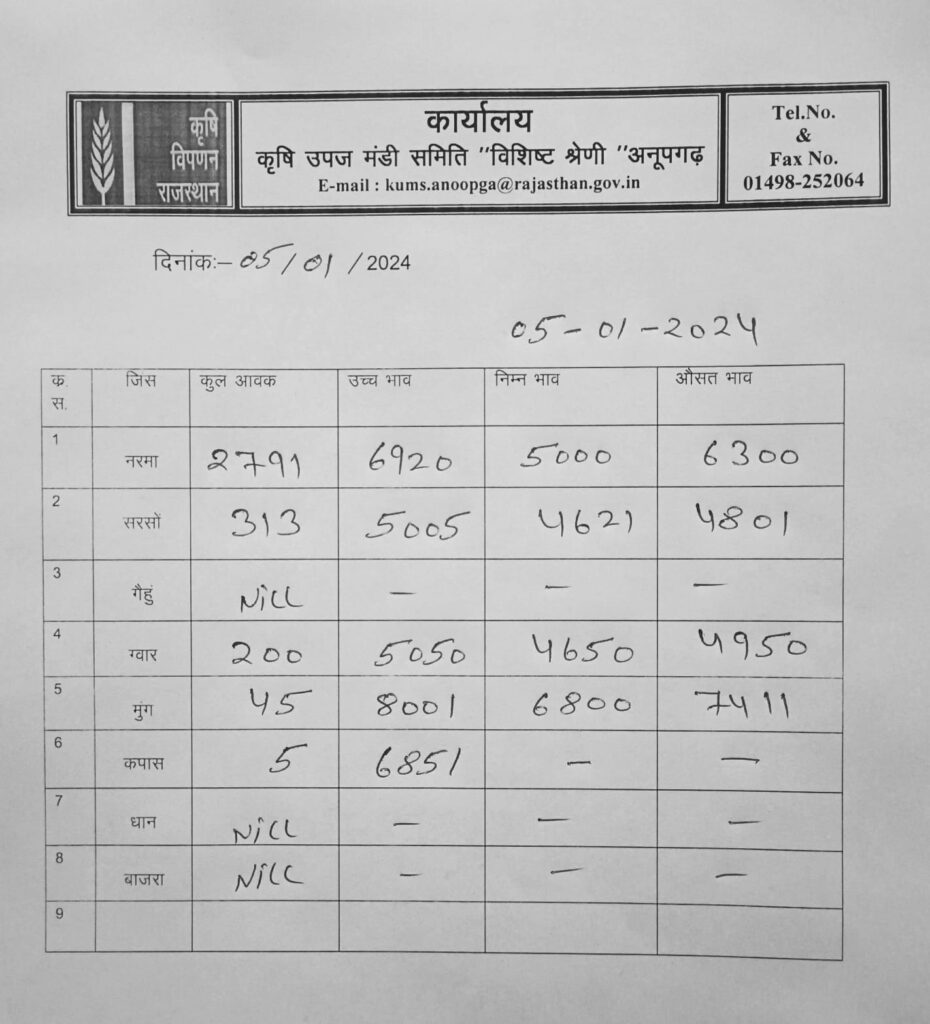 कृषि
विपणन
राजस्थान
कार्यालय
कृषि उपज मंडी समिति "विशिष्ट श्रेणी "अनूपगढ़
E-mail : kums.anoopga@rajasthan.gov.in
Tel.No.
&
Fax No.
01498-252064
दिनांकः– 05/01/2024
05-01-2024
क. स. जिस कुल आवक उच्च भाव निम्न भाव औसत भाव
1 नरमा 2791 6920 5000 6300
2 सरसों 313 5005 4621 4801
3 गैहुं NiLL — — —
4 ग्वार 200 5050 4650 4950
5 मुंग 45 8001 6800 7411
6 कपास 5 6851 — —
7 धान NiLL — — —
8 बाजरा NiLL — — —
9